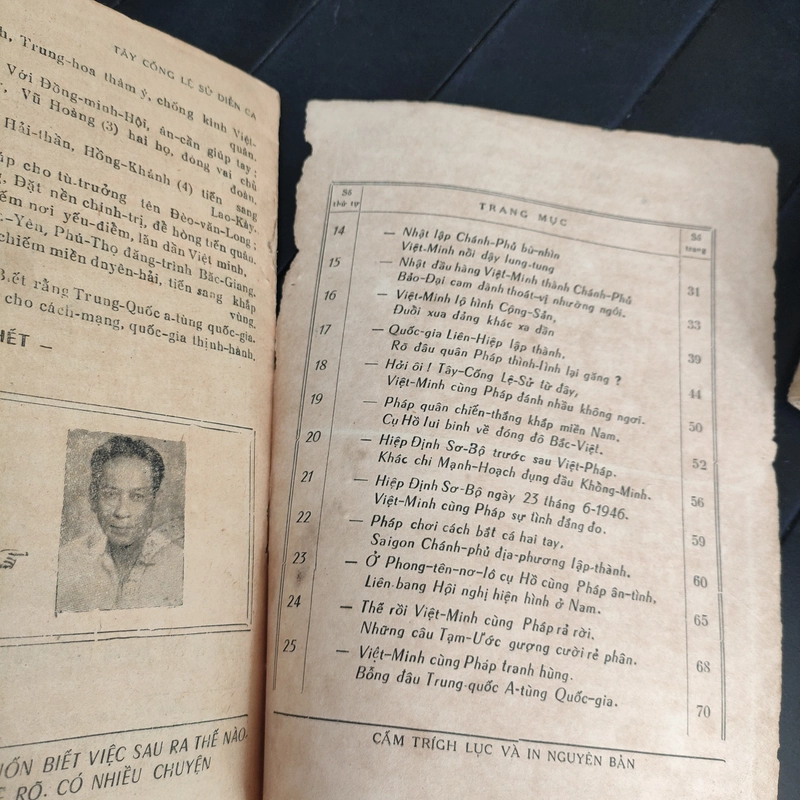 TÂY CỐNG LỆ SỬ DIỄN CA
Trung-hoa thâm ý, chống kình Việt-
quân.
Với Đồng-minh-Hội, ân-cần giúp tay;
Vũ Hoàng (3) hai họ, đóng vai chủ
đoàn.
Hải-thần, Hồng-Khánh (4) tiến sang
Lao-Kày.
cho tù.trưởng tên Đèo-văn-Long;
Đặt nền chính-trị, đề hòng tiến quân.
nơi yếu-điểm, lấn dần Việt minh.
-Yên, Phú-Thọ đăng-trình Bắc-Giang.
chiếm miền dnyên-hải, tiến sang khắp
vùng.
Biết rằng Trung-Quốc a-tùng quốc-gia.
cho cách-mạng, quốc-gia thịnh-hành.
HẾT –
BIẾT VIỆC SAU RA THẾ NÀO,
RÕ. CÓ NHIỀU CHUYỆN
Số
thứ tự
TRANG MỤC
Số
trang
14 — Nhật lập Chánh-Phủ bù-nhìn
Việt-Minh nồi dậy lung-tung 31
15 — Nhật đầu hàng Việt-Minh thành Chánh-Phủ
Bảo-Đại cam đành thoát-vị nhường ngôi. 33
16 — Việt-Minh lộ hình Cộng-Sản,
Đuồi xua đảng khác xa dần 39
17 — Quốc-gia Liên-Hiệp lập thành.
Rõ đâu quân Pháp thình-lình lại găng ? 44
18 — Hởi ôi ! Tây-Cống Lệ-Sử từ đây,
Việt-Minh cùng Pháp đánh nhầu không ngơi. 50
19 — Pháp quân chiến-thắng khắp miền Nam.
Cụ Hồ lui binh về đóng đô Bắc-Việt. 52
20 — Hiệp Định Sơ-Bộ trước sau Việt-Pháp.
Khác chi Mạnh-Hoạch đụng đầu Khồng-Minh. 56
21 — Hiệp Định Sơ-Bộ ngày 23 tháng 6-1946.
Việt-Minh cùng Pháp sự tình đắng đo. 59
22 — Pháp chơi cách bắt cá hai tay,
Saigon Chánh-phủ địa-phương lập-thành. 60
23 — Ở Phong-tên-nơ-lô cụ Hồ cùng Pháp ân-tình,
Liên-bang Hội nghị hiện hình ở Nam. 65
24 — Thế rồi Việt-Minh cùng Pháp rả rời.
Những câu Tạm-Ước gượng cười rẻ phân. 68
25 — Việt-Minh cùng Pháp tranh hùng.
Bỗng đâu Trung-quốc A-tùng Quốc-gia. 70
CẤM TRÍCH LỤC VÀ IN NGUYÊN BẢN